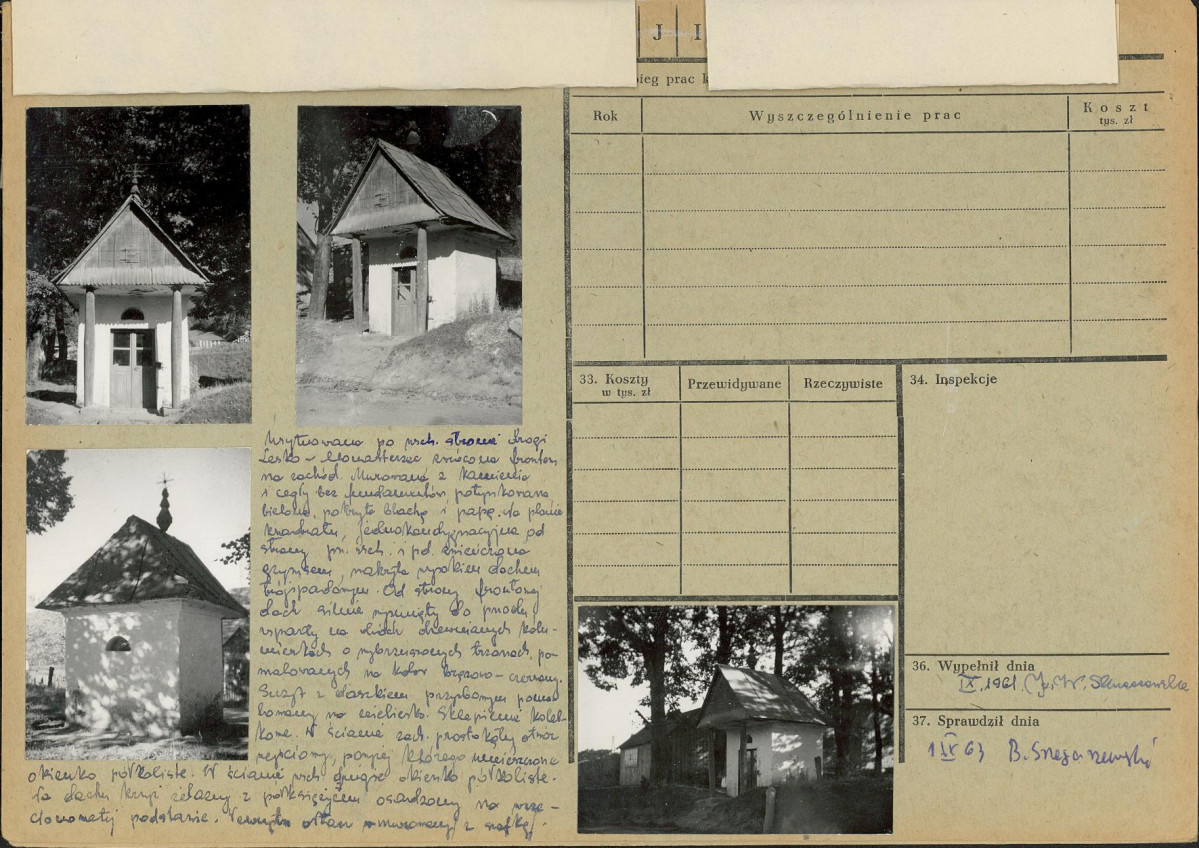 J I
ieg prac k
Rok
Wyszczególnienie prac
Koszt
tys. zł
33. Koszty
w tys. zł
Przewidywane
Rzeczywiste
34. Inspekcje
Usytuowana po wsch. stronie drogi
Lesko – Monasterzec zwrócona frontem
na zachód. Murowana z kamienia
i cegły bez fundamentów, potynkowana
bielona, pokryta blachą i papą. Na planie
kwadratu, jednokondygnacyjna od
strony pn. wsch. i pd. zwieńczona
gzymsem, nakryta wysokim dachem
trójspadowym. Od strony frontowej
dach silnie wysunięty do przodu
wsparty na dwóch drewnianych kolu-
mienkach o wybrzuszonych trzonach, po-
malowanych na kolor brązowo-czerwony.
Szczyt z daszkiem przyzbowym pomal
na niebiesko. Sklepienie koleb-
kowe. W ścianie zach. prostokątny otwór
wejściowy, powyżej którego umieszczone
okienko półkoliste. W ścianie wsch. drugie okienko półkoliste.
Na dachu krzyż żelazny z półksiężycem osadzony na
podstawie. Wewnątrz ołtarz murowany z
36. Wypełnił dnia
IX. 1961
37. Sprawdził dnia
1 IV 63 B.